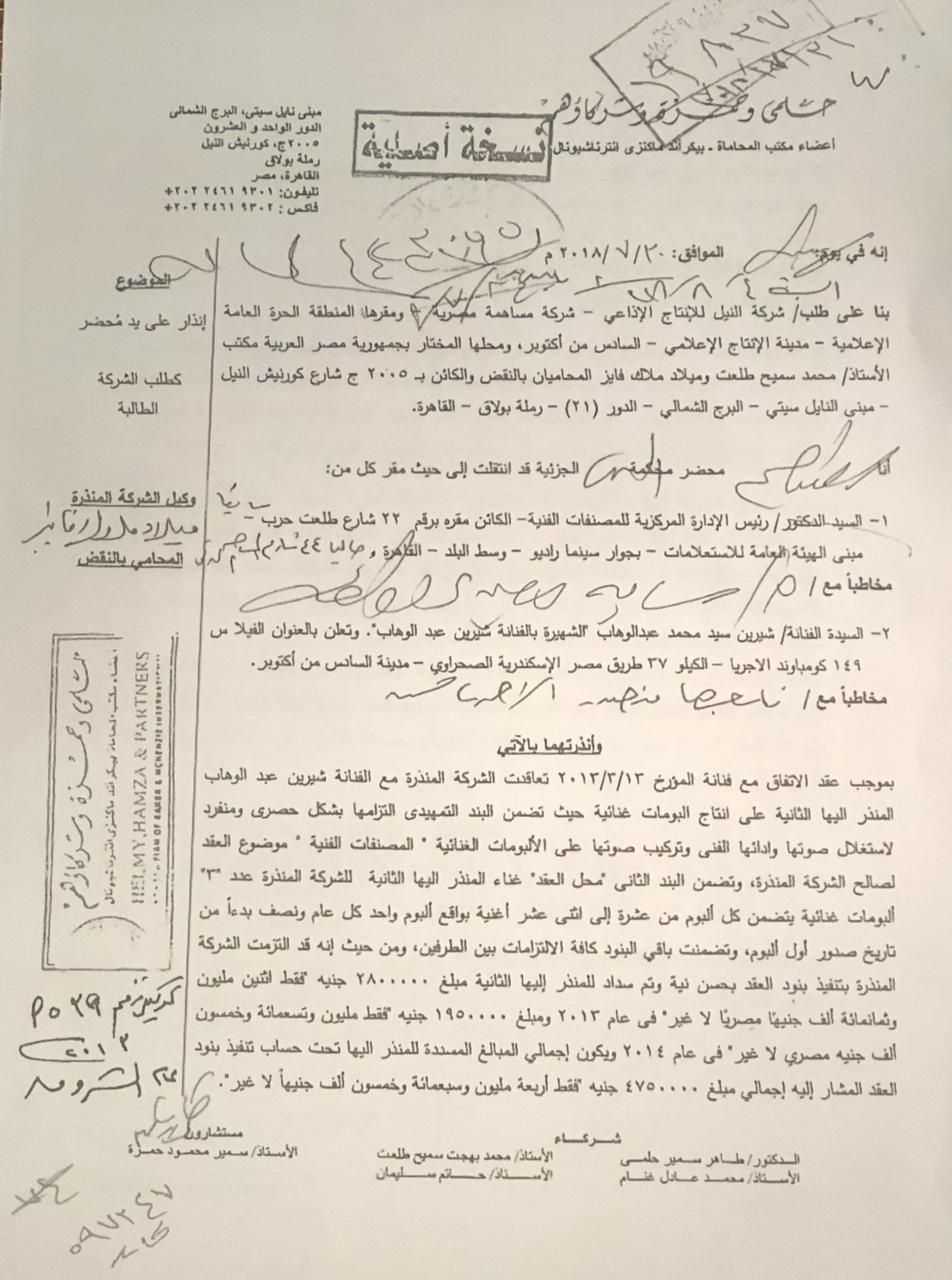 حلمى وحمزة وشركاؤهم
أعضاء مكتب المحاماة - بيكر أند ماكنزى انترناشيونال
نسخة أصلية
مبنى نايل سيتى، البرج الشمالى
الدور الواحد و العشرون
٢٠٠٥ج، كورنيش النيل
رملة بولاق
القاهرة، مصر
تليفون: ٩٣٠١ ٢٤٦١ ٢٠٢+
فاكس : ٩٣٠٢ ٢٤٦١ ٢٠٢+
إنه في يوم: الموافق: ٢٠١٨/٧/٣٠ م
بنا على طلب/ شركة النيل للإنتاج الإذاعي – شركة مساهمة مصرية – ومقرها المنطقة الحرة العامة
الإعلامية – مدينة الإنتاج الإعلامي – السادس من أكتوبر، ومحلها المختار بجمهورية مصر العربية مكتب
الأستاذ/ محمد سميح طلعت وميلاد ملاك فايز المحاميان بالنقض والكائن بـ ٢٠٠٥ ج شارع كورنيش النيل
– مبنى النايل سيتي – البرج الشمالي – الدور (٢١) – رملة بولاق – القاهرة.
أنا محضر محكمة الجزئية قد انتقلت إلى حيث مقر كل من:
١– السيد الدكتور/ رئيس الإدارة المركزية للمصنفات الفنية– الكائن مقره برقم ٢٢ شارع طلعت حرب
مبنى الهيئة العامة للاستعلامات – بجوار سينما راديو – وسط البلد – القاهرة
مخاطباً مع /
٢– السيدة الفنانة/ شيرين سيد محمد عبدالوهاب "الشهيرة بالفنانة شيرين عبد الوهاب". وتعلن بالعنوان الفيلا س
١٤٩ كومباوند الاجريا – الكيلو ٣٧ طريق مصر الإسكندرية الصحراوي – مدينة السادس من أكتوبر.
مخاطباً مع /
وأنذرتهما بالآتي
بموجب عقد الاتفاق مع فنانة المؤرخ ٢٠١٣/٣/١٣ تعاقدت الشركة المنذرة مع الفنانة شيرين عبد الوهاب
المنذر اليها الثانية على انتاج البومات غنائية حيث تضمن البند التمهيدى التزامها بشكل حصرى ومنفرد
لاستغلال صوتها وادائها الفنى وتركيب صوتها على الألبومات الغنائية " المصنفات الفنية " موضوع العقد
لصالح الشركة المنذرة، وتضمن البند الثانى "محل العقد" غناء المنذر اليها الثانية للشركة المنذرة عدد "٣"
ألبومات غنائية يتضمن كل ألبوم من عشرة إلى اثنى عشر أغنية بواقع ألبوم واحد كل عام ونصف بدءاً من
تاريخ صدور أول ألبوم، وتضمنت باقي البنود كافة الالتزامات بين الطرفين، ومن حيث إنه قد التزمت الشركة
المنذرة بتنفيذ بنود العقد بحسن نية وتم سداد للمنذر إليها الثانية مبلغ ٢٨٠٠٠٠٠ جنيه "فقط اثنين مليون
وثمانمائة ألف جنيهًا مصريًا لا غير" فى عام ٢٠١٣ ومبلغ ١٩٥٠٠٠٠ جنيه "فقط مليون وتسعمائة وخمسون
ألف جنيه مصري لا غير" فى عام ٢٠١٤ ويكون إجمالي المبالغ المسددة للمنذر اليها تحت حساب تنفيذ بنود
العقد المشار إليه إجمالي مبلغ ٤٧٥٠٠٠٠ جنيه "فقط أربعة مليون وسبعمائة وخمسون ألف جنيهاً لا غير".
الموضوع
إنذار على يد مُحضر
كطلب الشركة
الطالبة
وكيل الشركة المنذرة
ميلاد ملاك فايز
المحامي بالنقض
حلمى وحمزة وشركاؤهم
أعضاء مكتب المحاماة بيكر أند ماكنزى انترناشيونال
HELMY, HAMZA & PARTNERS
FIRM OF BAKER & MCKENZIE INTERNATIONAL
شركـــاء
الدكتور/ طاهر سمير حلمى
الأستاذ/ محمد بهجت سميح طلعت
الأستاذ/ محمد عادل غنام
الأستاذ/ حاتم سليمان
مستشارون
الأستاذ/ سمير محمود حمزة